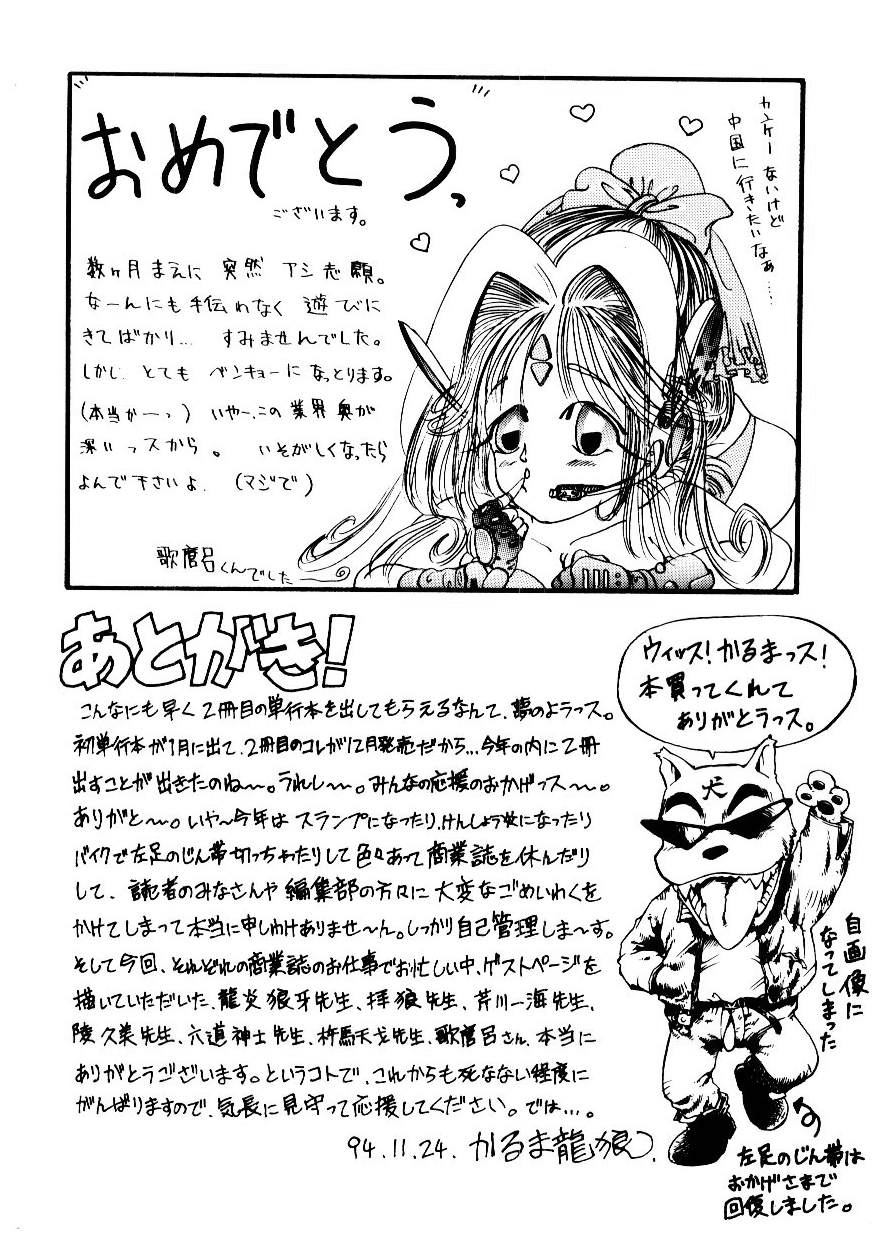 おめでとうっ
ございます。
カンケーないけど
中国に行きたいなぁ……
数ヶ月まえに 突然 アシ志願。
なーんにも手伝わなく 遊びに
きてばかり… すみませんでした。
しかし とても ベンキョーになっとります。
(本当かーっ) いやー、この業界奥が
深いっスから。 いそがしくなったら
よんで下さいよ. (マジで)
歌麿呂くんでした
あとがき!
こんなにも早く2冊目の単行本を出してもらえるなんて、夢のようっス。
初単行本が1月に出て、2冊目のコレが12月発売だから…今年の内に2冊
出すことが出きたのね〜。うれし〜。みんなの応援のおかげっス〜。
ありがと〜。いや〜今年はスランプになったり、けんしょう炎になったり
バイクで左足のじん帯切っちゃたりして色々あって商業誌を休んだり
して、読者のみなさんや編集部の方々に大変なごめいわくを
かけてしまって本当に申しわけありませ〜ん。しっかり自己管理しま〜す。
そして今回、それぞれの商業誌のお仕事でお忙しい中、ゲストページを
描いていただいた、龍炎狼牙先生、拝狼先生、芹川一海先生、
陵久美先生、六道神士先生、杵馬天戈先生、歌麿呂さん、本当に
ありがとうございます。というコトで、これからも死なない程度に
がんばりますので、気長に見守って応援してください。では…。
94.11.24. かるま龍狼.
ウィッス!かるまっス!
本買ってくれて
ありがとうっス。
犬
自画像に
なってしまった
左足のじん帯は
おかげさまで
回復しました。